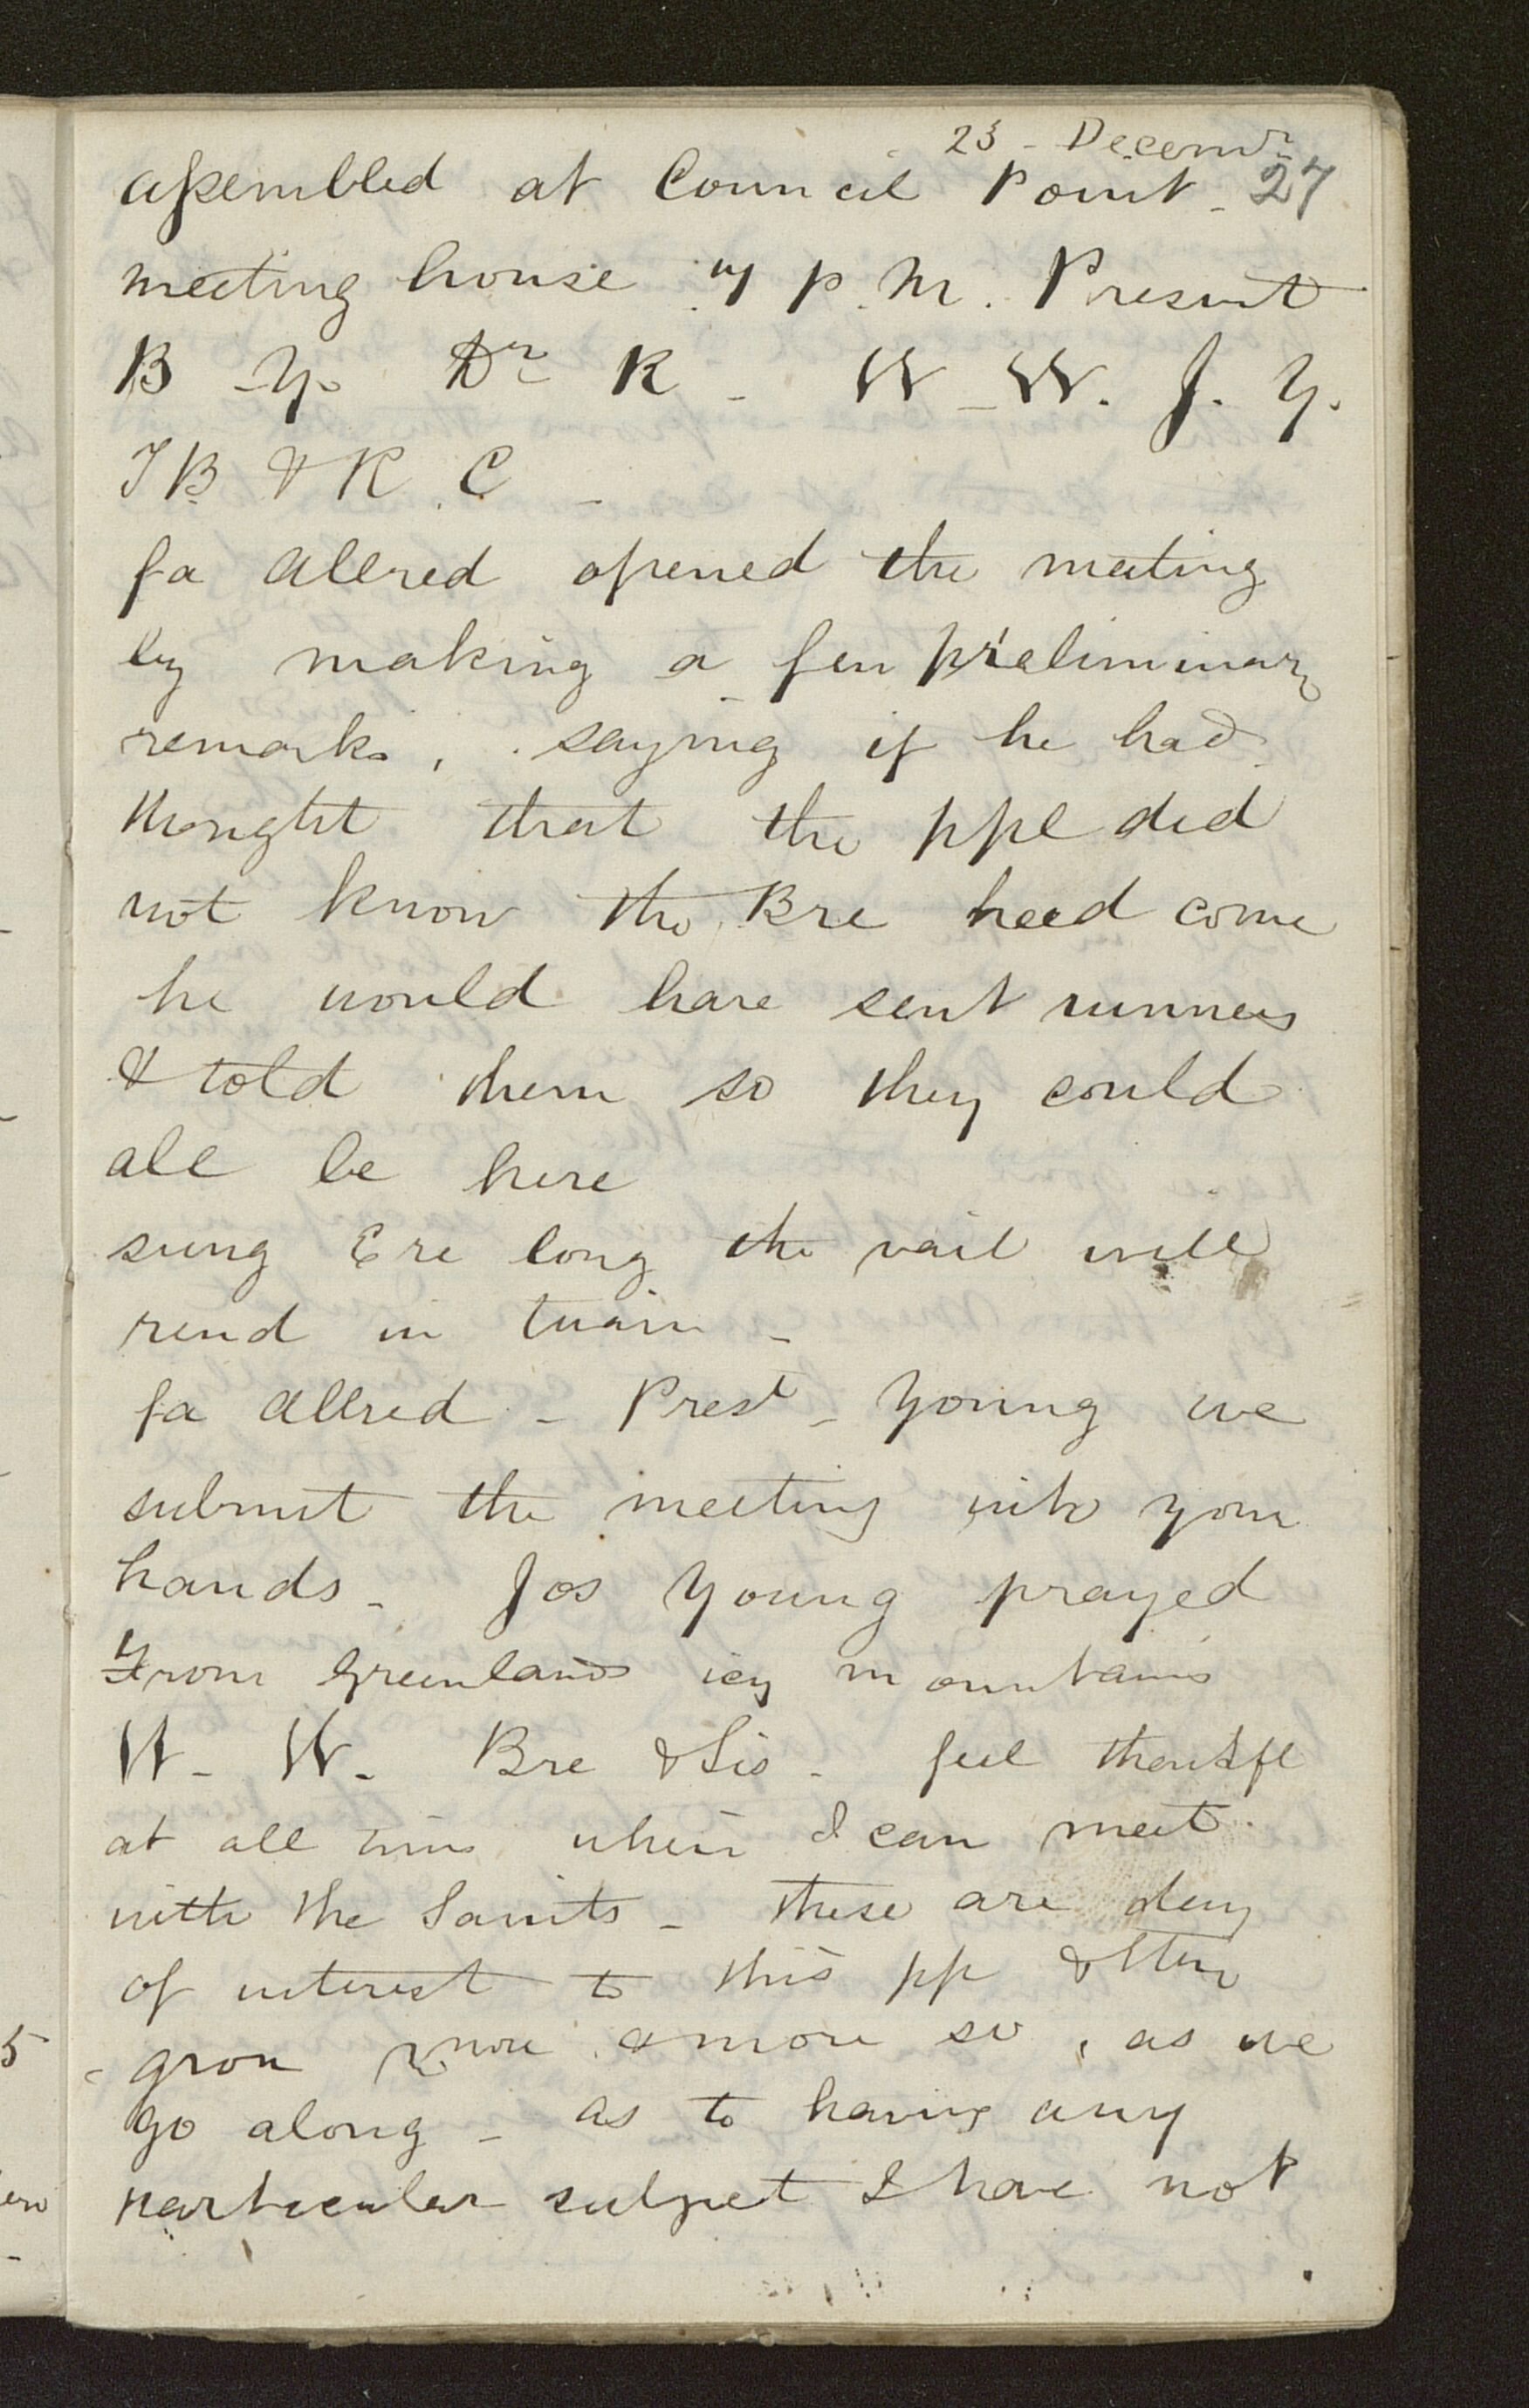 23 - Decemr
assembled at Council Point - 27
meeting house 7 p.m. Present
B - Y. Dr R - W - W. J. Y.
T B & R C -
fa Allred opened the meeting
by making a few preliminary
remarks, saying if he had
thought that the ppl did
not know the Bre had come
he would have sent runners
& told them so they could
all be here
sung Ere long the vail will
rend in twain -
fa Allred - Prest - Young we
submit the meeting into your
hands - Jos Young prayed
From Greenlands icy mountains
W - W - Bre & Sis - feel thankfl
at all times when I can meet
with the Saints - these are days
of interest to this pp &
grow more & more so, as we
go along - as to having any
particular subject I have not
5